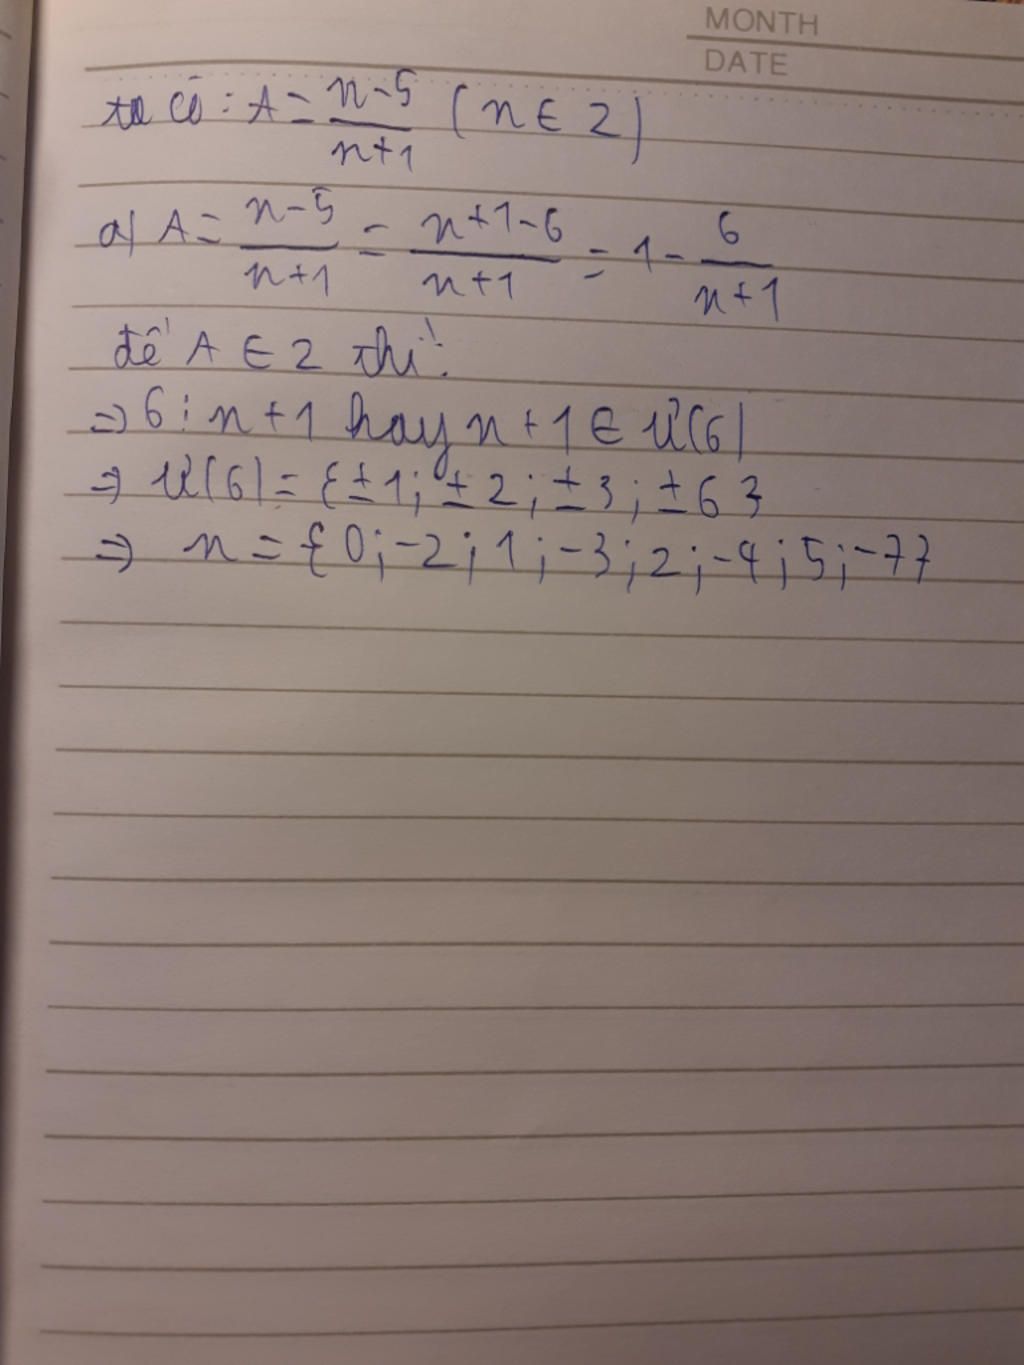 MONTH
DATE
ta có : A = n-5/n+1 ( n ∈ Z )
a) A = n-5/n+1 = n+1-6/n+1 = 1 - 6/n+1
để A ∈ Z thì:
=> 6 ⋮ n+1 hay n+1 ∈ Ư(6)
=> Ư(6) = {±1; ±2; ±3; ±6}
=> n = {0; -2; 1; -3; 2; -4; 5; -7}